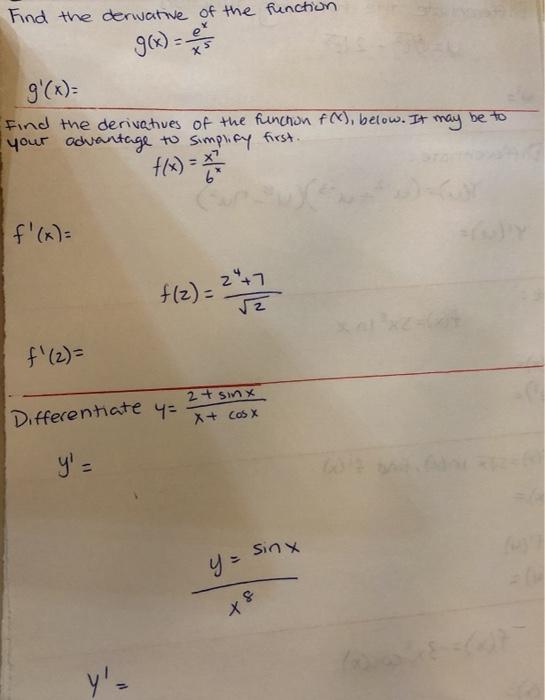 Find the derivative of the function
g(x) = e^x / x^5
g'(x)=
Find the derivatives of the function f(x), below. It may be to
your advantage to simplify first.
f(x) = x^7 / 6^x
f'(x)=
f(z) = z^4+7 / √z
f'(z)=
Differentiate y= 2 + sinx / x + cosx
y' =
y = sinx / x^8
y' =